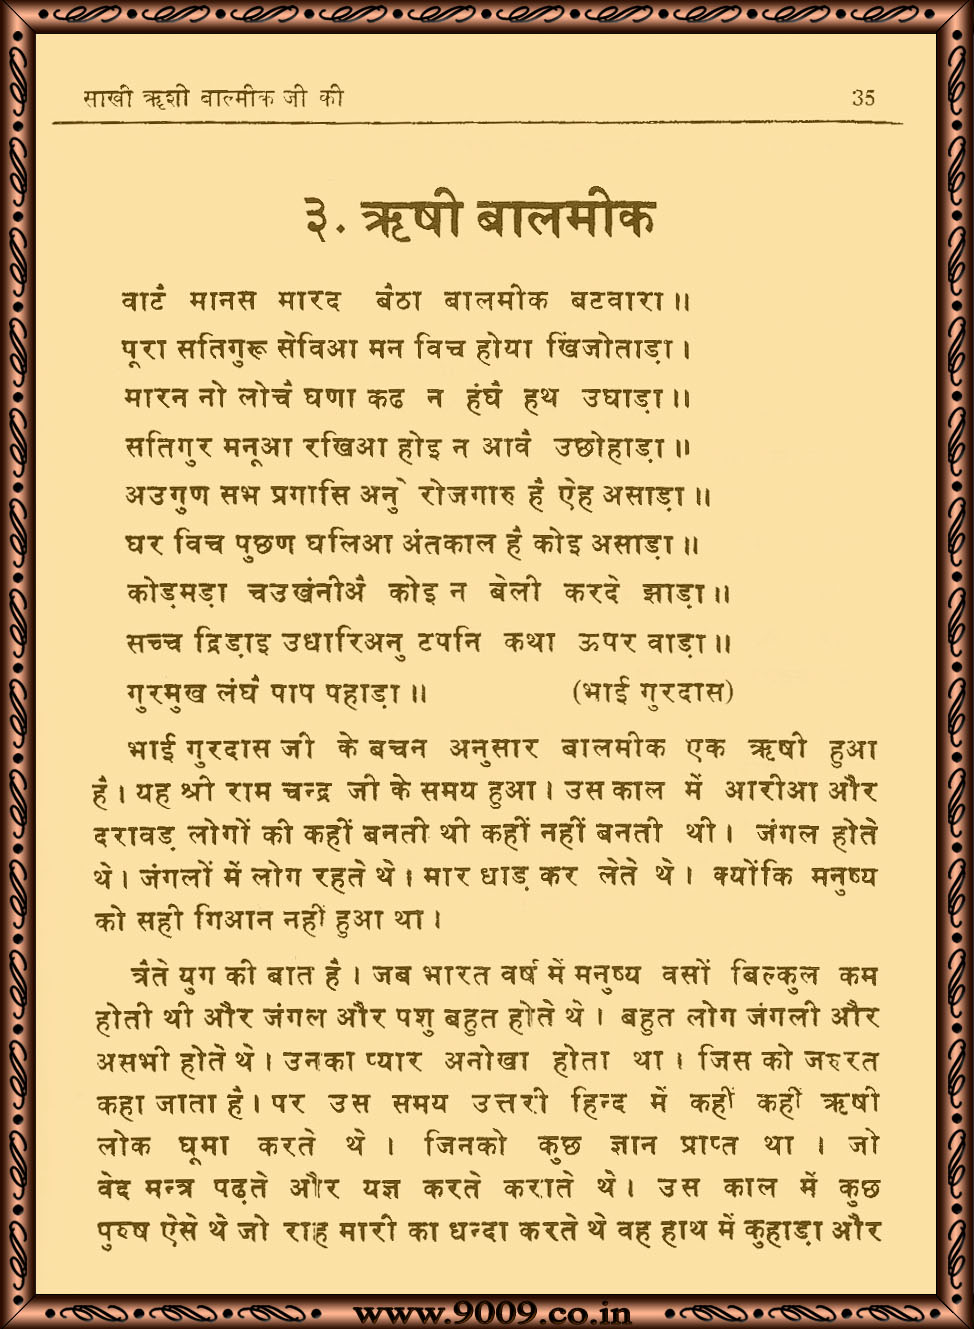 साखी ऋशी बाल्मीक जी की 35
३. ऋषी बालमीक
वाटै मानस मारद बैठा बालमीक बटवारा॥
पूरा सतिगुरू सेविआ मन विच होया खिंजोताड़ा।
मारन नो लोचै घणा कढ न हंघै हथ उघाड़ा॥
सतिगुर मनूआ रखिआ होइ न आवै उछोहाड़ा॥
अउगुण सभ प्रगासि अनु रोजगारु है ऐह असाड़ा॥
घर विच पुछण घलिआ अंतकाल है कोइ असाड़ा॥
कोड़मड़ा चउखंनीअै कोइ न बेली करदे झाड़ा॥
सच्च द्रिड़ाइ उधारिअनु टपनि कथा ऊपर वाड़ा॥
गुरमुख लंघै पाप पहाड़ा॥ (भाई गुरदास)
भाई गुरदास जी के बचन अनुसार बालमीक एक ऋषी हुआ
है। यह श्री राम चन्द्र जी के समय हुआ। उस काल में आरीआ और
दरावड़ लोगों की कहीं बनती थी कहीं नहीं बनती थी। जंगल होते
थे। जंगलों में लोग रहते थे। मार धाड़ कर लेते थे। क्योंकि मनुष्य
को सही गिआन नहीं हुआ था।
त्रैते युग की बात है। जब भारत वर्ष में मनुष्य वसों बिल्कुल कम
होती थी और जंगल और पशु बहुत होते थे। बहुत लोग जंगली और
असभी होते थे। उनका प्यार अनोखा होता था। जिस को जरुरत
कहा जाता है। पर उस समय उत्तरी हिन्द में कहीं कहीं ऋषी
लोक घूमा करते थे। जिनको कुछ ज्ञान प्राप्त था। जो
वेद मन्त्र पढ़ते और यज्ञ करते कराते थे। उस काल में कुछ
पुरुष ऐसे थे जो राह मारी का धन्दा करते थे वह हाथ में कुहाड़ा और
www.9009.co.in